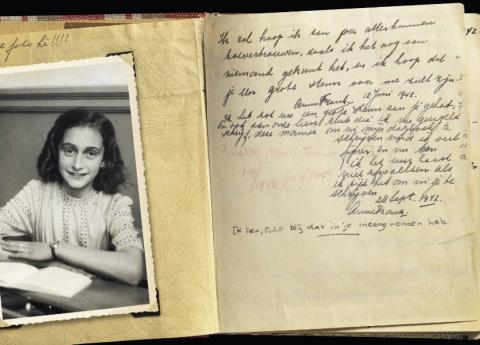 e foto hè!!!!
Ik zal hoop ik aan jou alles kunnen
toevertrouwen, zoals ik het nog aan
niemand gekund heb, en ik hoop dat
je een grote steun voor me zult zijn.
Anne Frank. 12 Juni 1942.
Ik heb tot nu toe een grote steun aan je gehad,
en ook aan onze lieve club die ik nu geregeld
schrijf, deze manier om in mijn dagboek te
schrijven vind ik veel
fijner en nu kan
ik het uur haast
niet afwachten als
ik tijd heb om in je te
schrijven
28 Sept. 1942.
Anne Frank.
Ik ben, O, zo blij dat ik je meegenomen heb.
42.